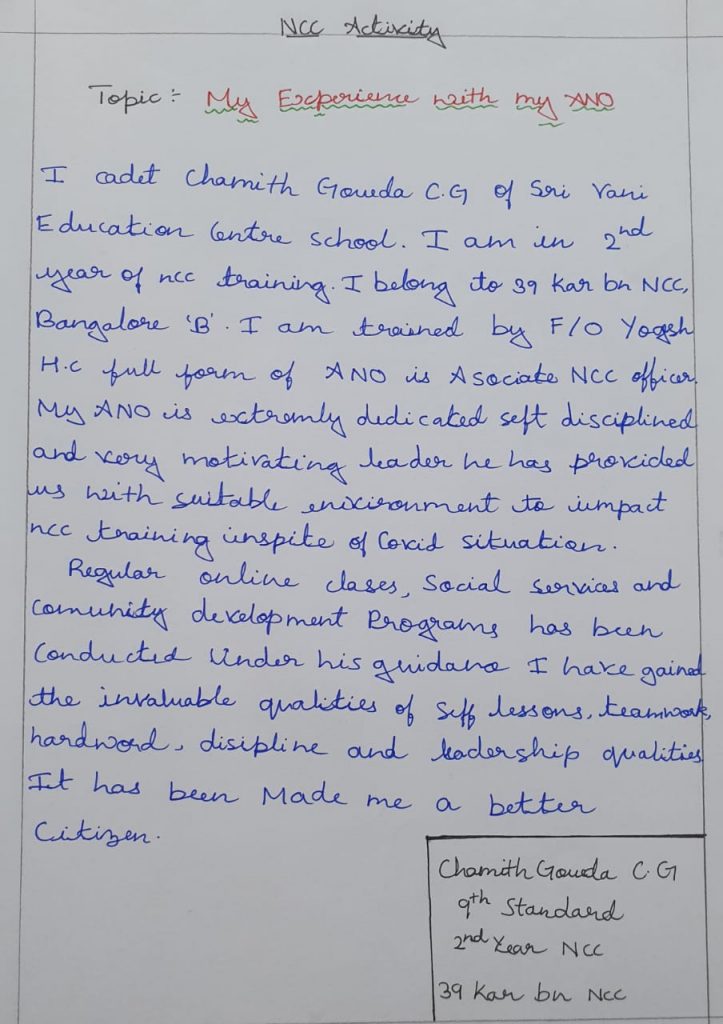 NCC Activity
Topic:- My Experience with my ANO
I cadet Chamith Gowda C.G of Sri Vani
Education Centre school. I am in 2nd
year of ncc training. I belong to 39 Kar bn NCC,
Bangalore 'B'. I am trained by F/O Yogsh
H.c full form of ANO is Asociate NCC officer.
My ANO is extremly dedicated self disciplined
and very motivating leader he has provided
us with suitable enivironment to iumpact
ncc training inspite of Covid situation.
Regular online clases, Social services and
Comunity development Programs has been
Conducted Under his guidance I have gained
the invaluable qualities of self lessons, teamwork,
hardword, disipline and leadership qualities
It has been Made me a better
Citizen.
Chamith Gowda C.G
9th Standard
2nd Year NCC
39 Kar bn NCC